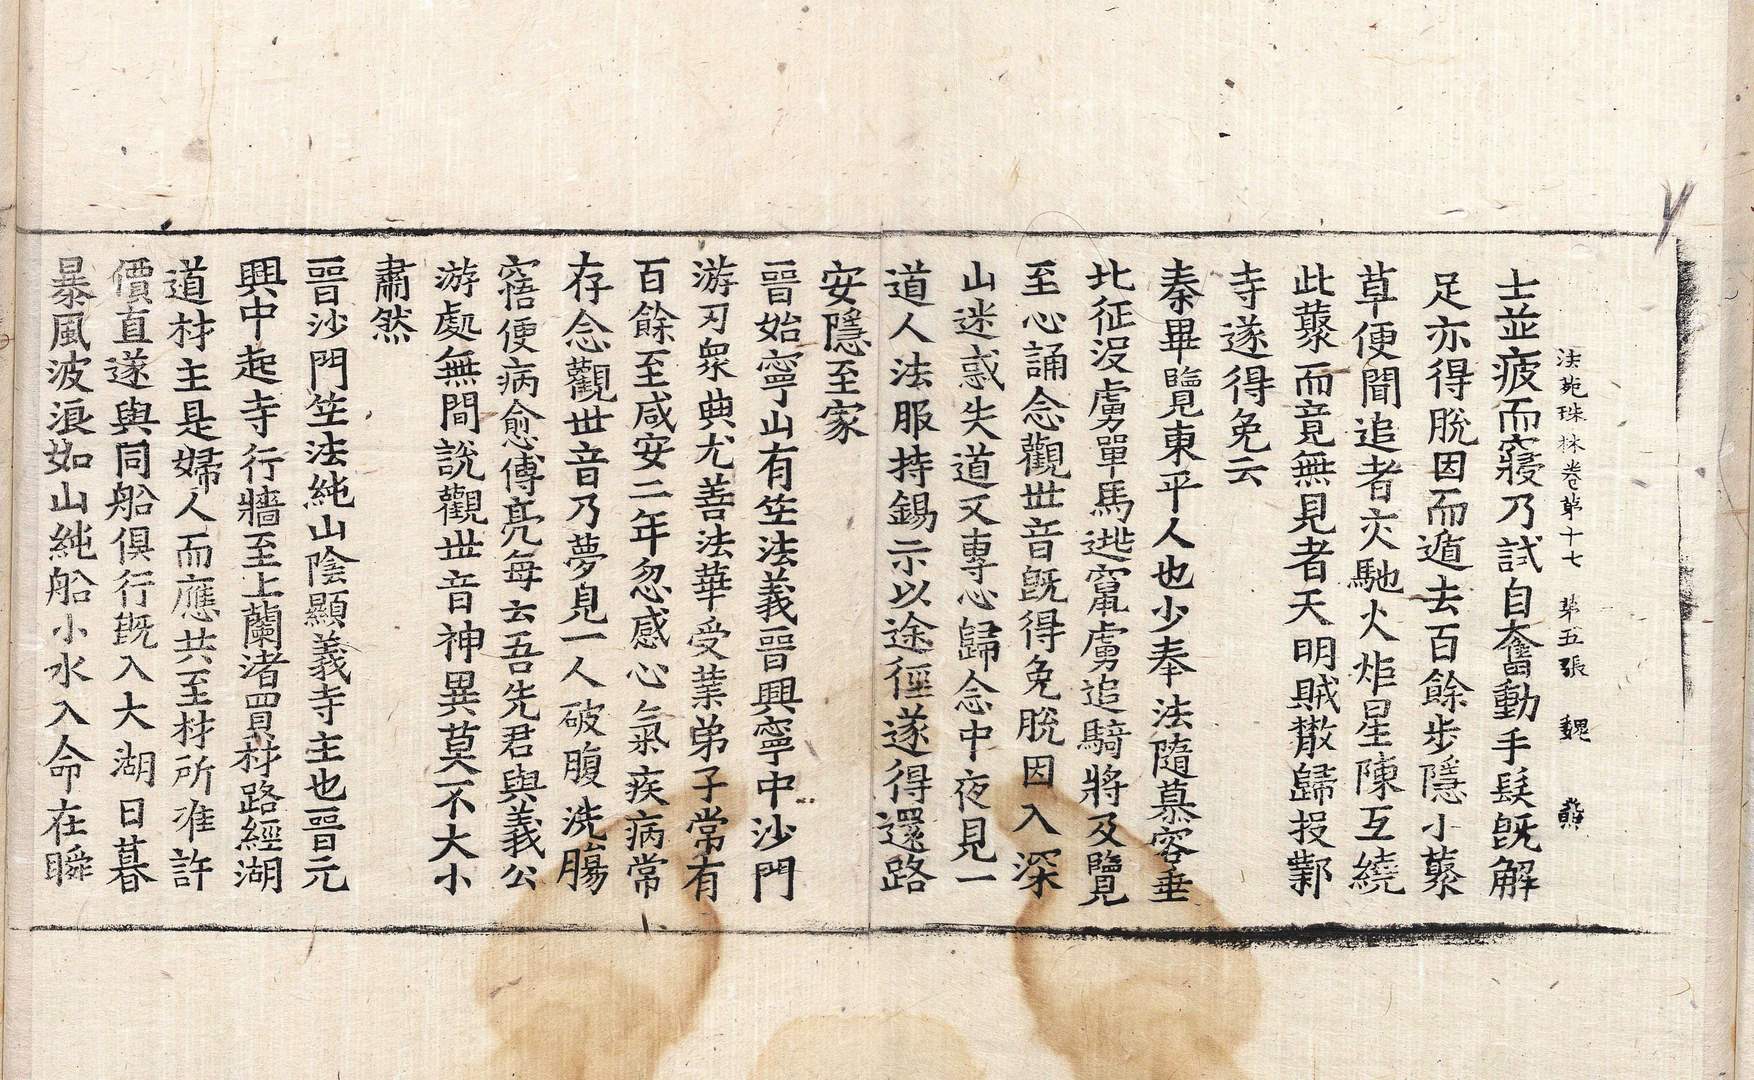 法苑珠林卷第十七 第五張 魏
士並疲而寢乃試自奮動手髮旣解
足亦得脫因而遁去百餘步隱小藂
草便聞追者交馳火炬星陳互繞
此藂而竟無見者天明賊散歸投鄴
寺遂得免云
秦畢覽東平人也少奉法隨慕容垂
北征沒虜單馬逃竄虜追騎將及覽
至心誦念觀世音旣得免脫因入深
山迷惑失道又專心歸念中夜見一
道人法服持錫示以途徑遂得還路
安隱至家
晉始寧山有竺法義晉興寧中沙門
游刃衆典尤善法華受業弟子常有
百餘至咸安二年忽感心氣疾病常
存念觀世音乃夢見一人破腹洗腸
寤悟便病愈傅亮每云吾先君與義公
游處無間說觀世音神異莫不大小
肅然
晉沙門竺法純山陰顯義寺主也晉元
興中起寺行牆至上蘭渚買材路經湖
道材主是婦人而應共至材所准許
價直遂與同船俱行旣入大湖日暮
暴風波浪如山純船小水入命在瞬